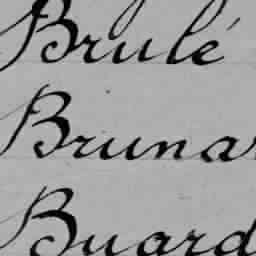 Brulé
Brunar
Buard